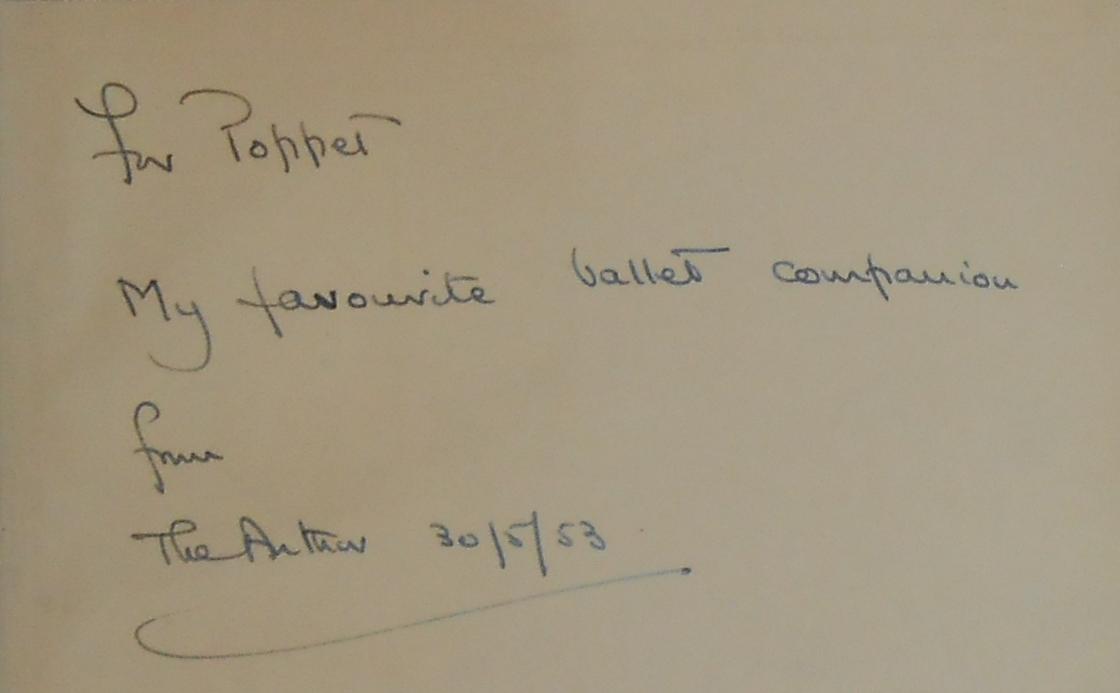 For Poppet
My favourite ballet companion
from
The Author 30/5/53